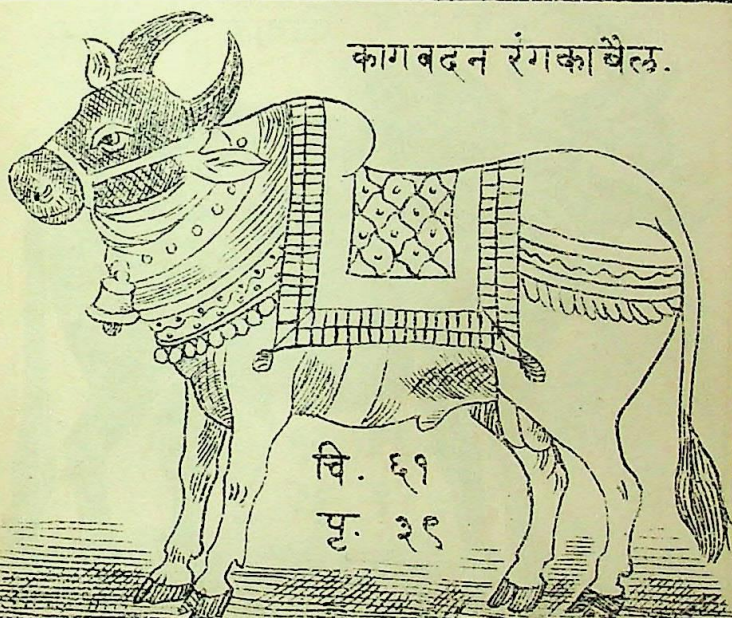 कागबदन रंगका बैल.
चि. ६१
पृ. २९